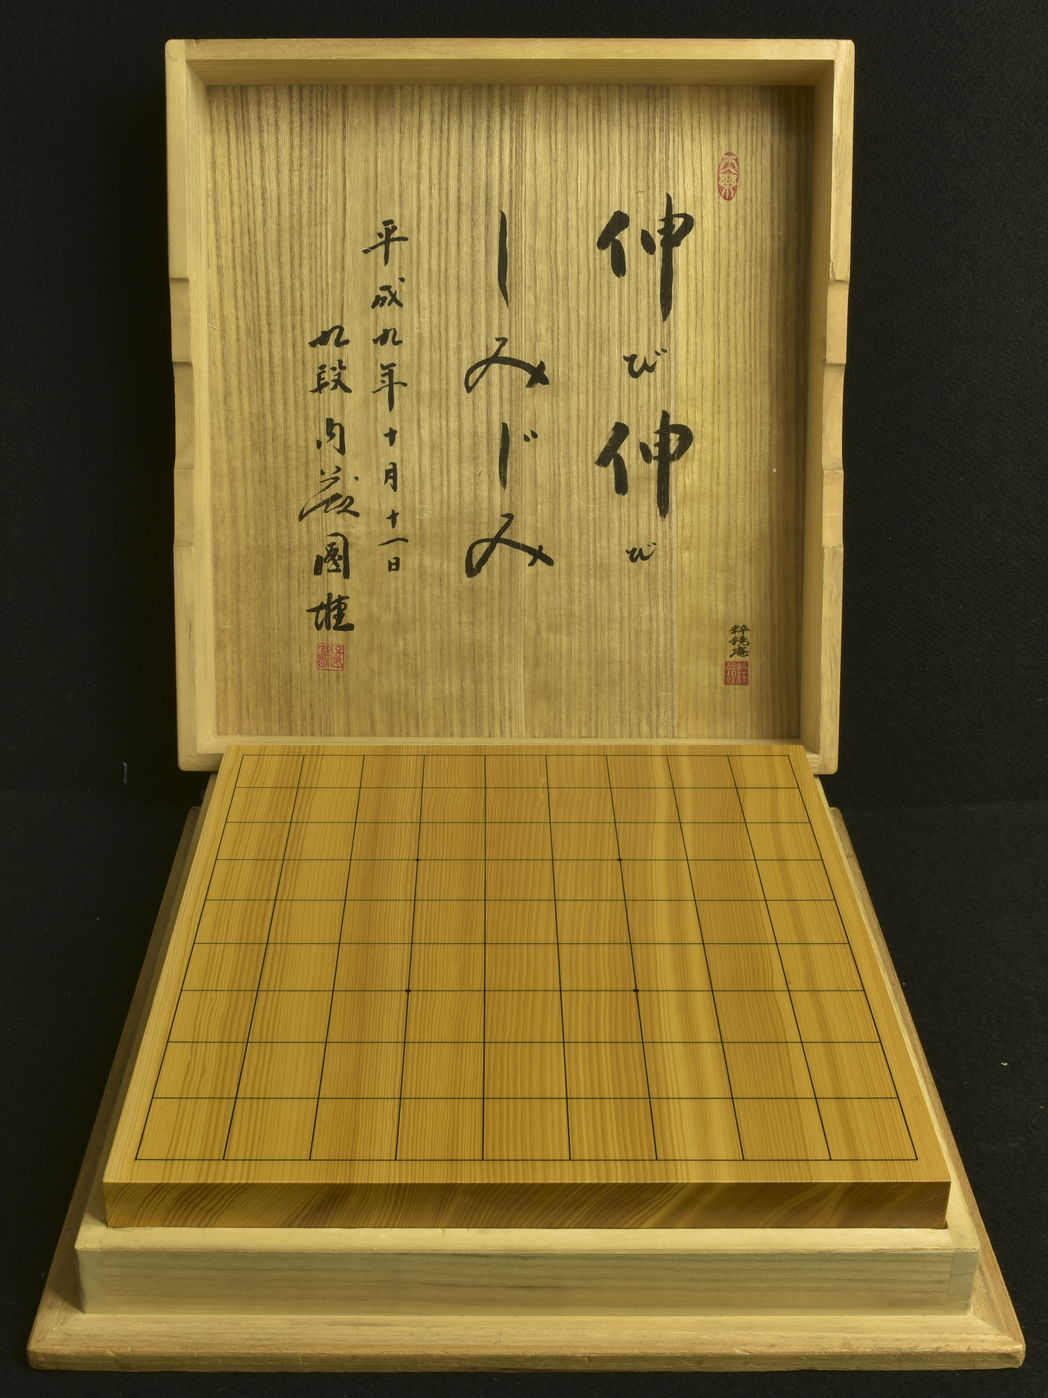 伸び伸び
しみじみ
平成九年十月十一日
九段内藤國雄
粋鏡庵